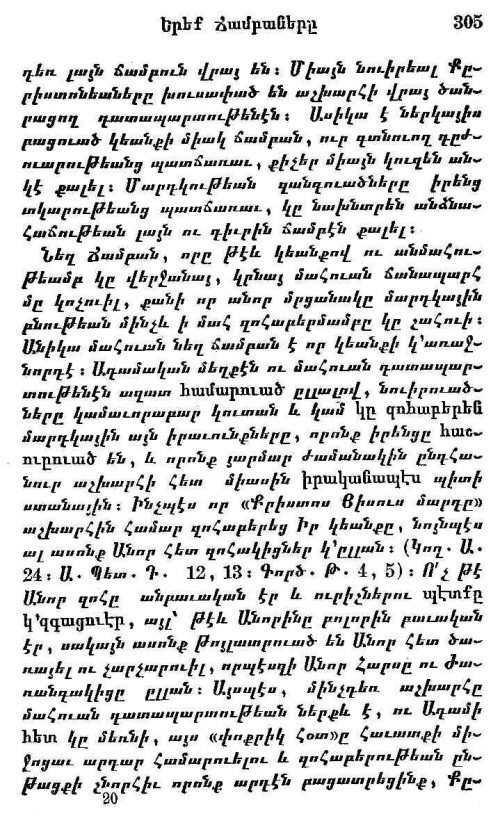 Երեք Ճամբաները 305
դեռ լայն ճամբուն վրայ են: Միայն նուիրեալ Քը-
րիստոնեաները խուսափած են աշխարհի վրայ ծան-
րացող դատապարտութենէն: Ասիկա է ներկայիս
բացուած կեանքի միակ ճամբան, ուր գտնուող դըժ-
ուարութեանց պատճառաւ, քիչեր միայն կուզեն ան-
կէ քալել: Մարդկութեան զանգուածները իրենց
տկարութեանց պատճառաւ, կը նախնտրեն անձնա-
հաճութեան լայն ու դիւրին ճամբէն քալել:
Նեղ Ճամբան, որը թէև կեանքով ու անմահու-
թեամբ կը վերջանայ, կրնայ մահուան ճանապարհ
մը կոչուիլ, քանի որ անոր մրցանակը մարդկային
բնութեան մինչև ի մահ զոհաբերմամբը կը շահուի:
Անիկա մահուան նեղ ճամբան է որ կեանքի կ՚առաջ-
նորդէ: Ադամական մեղքէն ու մահուան դատապար-
տութենէն ազատ համարուած ըլլալով, նուիրուած-
ները կամաւորաբար կուտան և կամ կը զոհաբերեն
մարդկային այն իրաւունքները, որոնք իրենցը հաշ-
ուըուած են, և որոնք յարմար ժամանակին ընդհա-
նուր աշխարհի հետ միասին իրականապէս պիտի
ստանային: Ինչպէս որ «Քրիստոս Յիսուս մարդը»
աշխարհին համար զոհաբերեց Իր կեանքը, նոյնպէս
ալ ասոնք Անոր հետ զոհակիցներ կ՚ըլլան: (Կող. Ա.
24: Ա. Պետ. Դ. 12, 13: Գործ. Թ. 4, 5): Ո՛չ թէ
Անոր զոհը անբաւական էր և ուրիշներու պէտքը
կ՚զգացուէր, այլ՝ թէև Անորինը բոլորին բաւական
էր, սակայն ասոնք Թոյլատրուած են Անոր հետ ծա-
ռայել ու չարչարուիլ, որպէսզի Անոր Հարսը ու Ժա-
ռանգակիցը ըլլան: Այսպէս, մինչդեռ աշխարհը
մահուան դատապարտութեան ներքև է, ու Ադամի
հետ կը մեռնի, այս «փոքրիկ Հօտ»ը հաւատքի մի-
ջոցաւ արդար համարուելու և զոհաբերութեան ըն-
թացքի շնորհիւ որոնք արդէն բացատրեցինք, Քը-
20